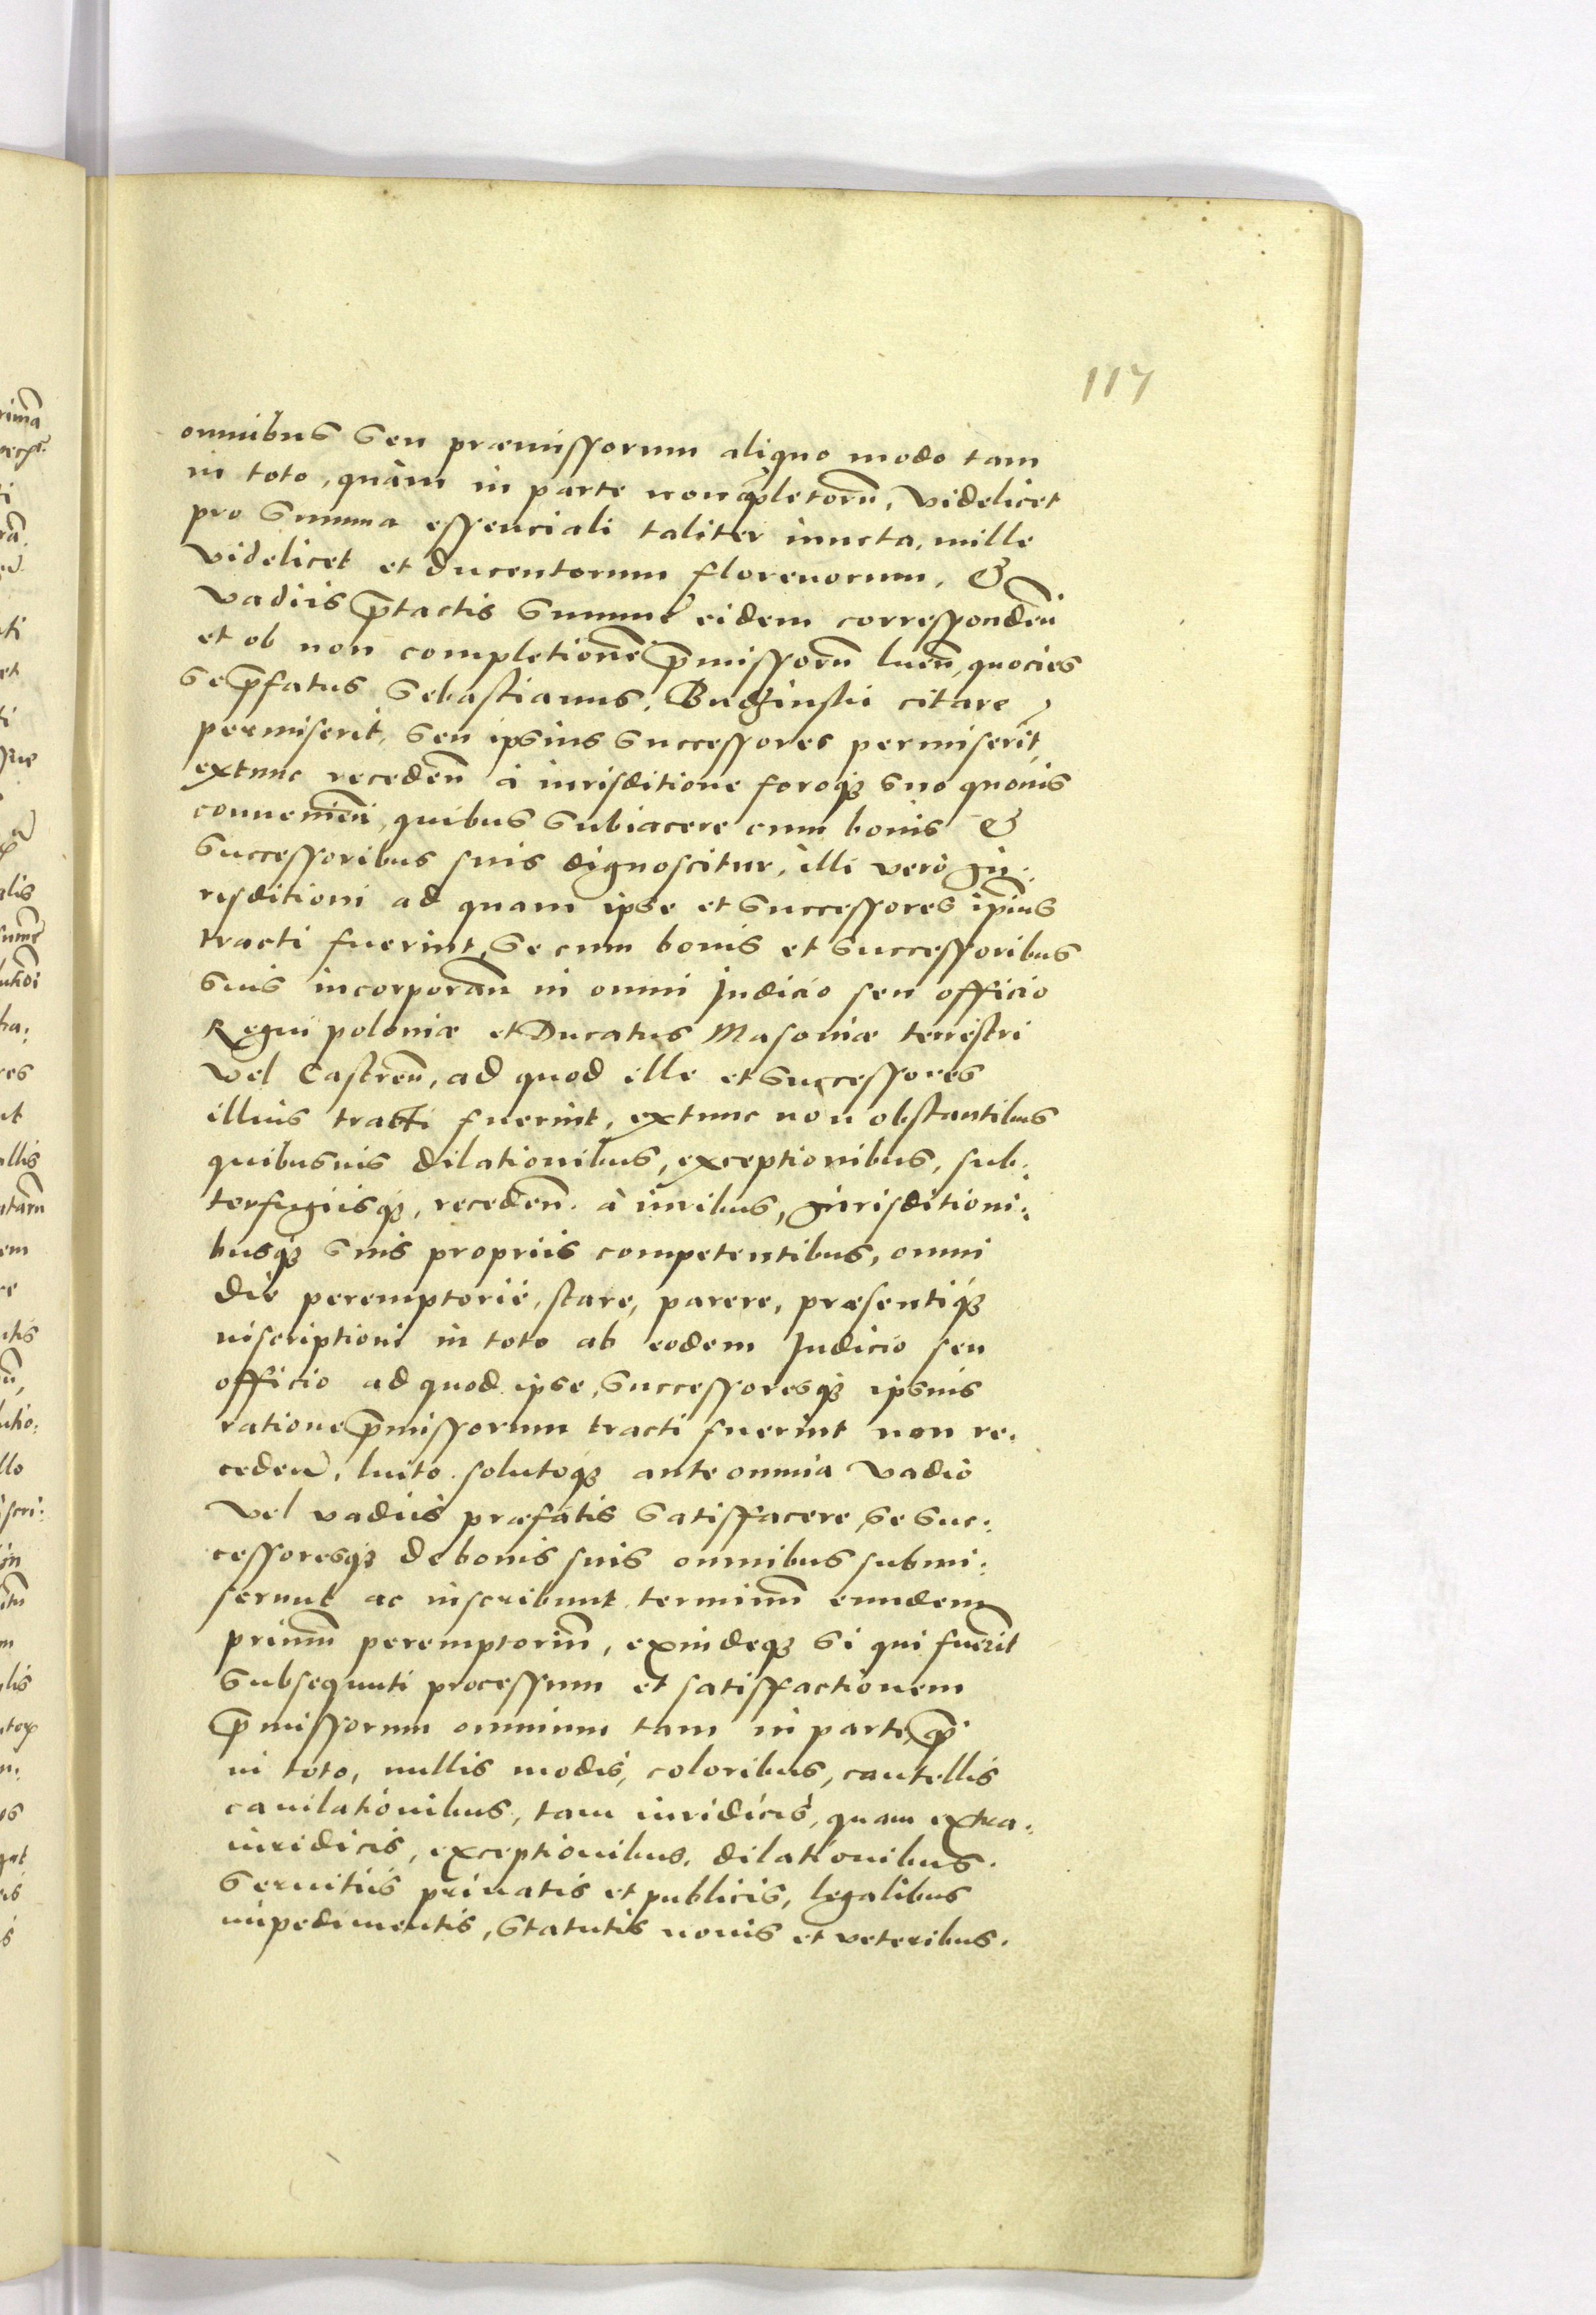 117
omnibus seu præmissorum aliquo modo tam
in toto, quàm in parte non cōpletorū, videlicet
pro summa essenciali taliter iuncta, mille
videlicet et ducentorum florenorum, &
vadiis p̄tactis summæ eidem correspondeñ
et ob non completionē p̄missorū lueñ, quocies
se p̄fatus Sebastianus Budzinski citare
permiserit, seu ipsius successores permiserīt,
extunc recedeñ à iurisditione foroq̃ suo quouis
conuenieñ, quibus subiacere cum bonis &
successoribus suis dignoscitur, illi verò Iu:
risditioni ad quam ipse et successores ip̄ius
tracti fuerint, se cum bonis et successoribus
suis incorporañ in omni Iudicio seu officio
Regni poloniæ et Ducatus Masouiæ terrestri
vel Castreñ, ad quod ille et successores
illius tracti fuerint, extunc nòn obstantibus
quibusuis dilationibus, exceptionibus, sub:
terfugiisq̃, recedeñ. à iuribus, Iurisditioni:
busq̃ suis propriis competentibus, omni
die peremptoriè, stare, parere, præsentiq̃
inscriptioni in toto ab eodem Iudicio seu
officio ad quod ipse, successoresq̃ ipsius
ratione p̄missorum tracti fuerint non re:
cedeñ, luito solutoq̃ ante omnia vadio
vel vadiis præfatis satisfacere, se suc:
cessoresq̃ de bonis suis omnibus submi:
serunt ac inscribunt terminū eundem
primū peremptoriū, exindeq̃ si qui fuerīt
subsequuti processum et satisfactionem
p̄missorum omnium tam in parte, q̃
in toto, nullis modis, coloribus, cautellis
cauilationibus, tam iuridicis, quam extra:
iuridicis, exceptionibus, dilationibus.
seruitiis priuatis et publicis, legalibus
impedimentis, statutis nouis et veteribus.